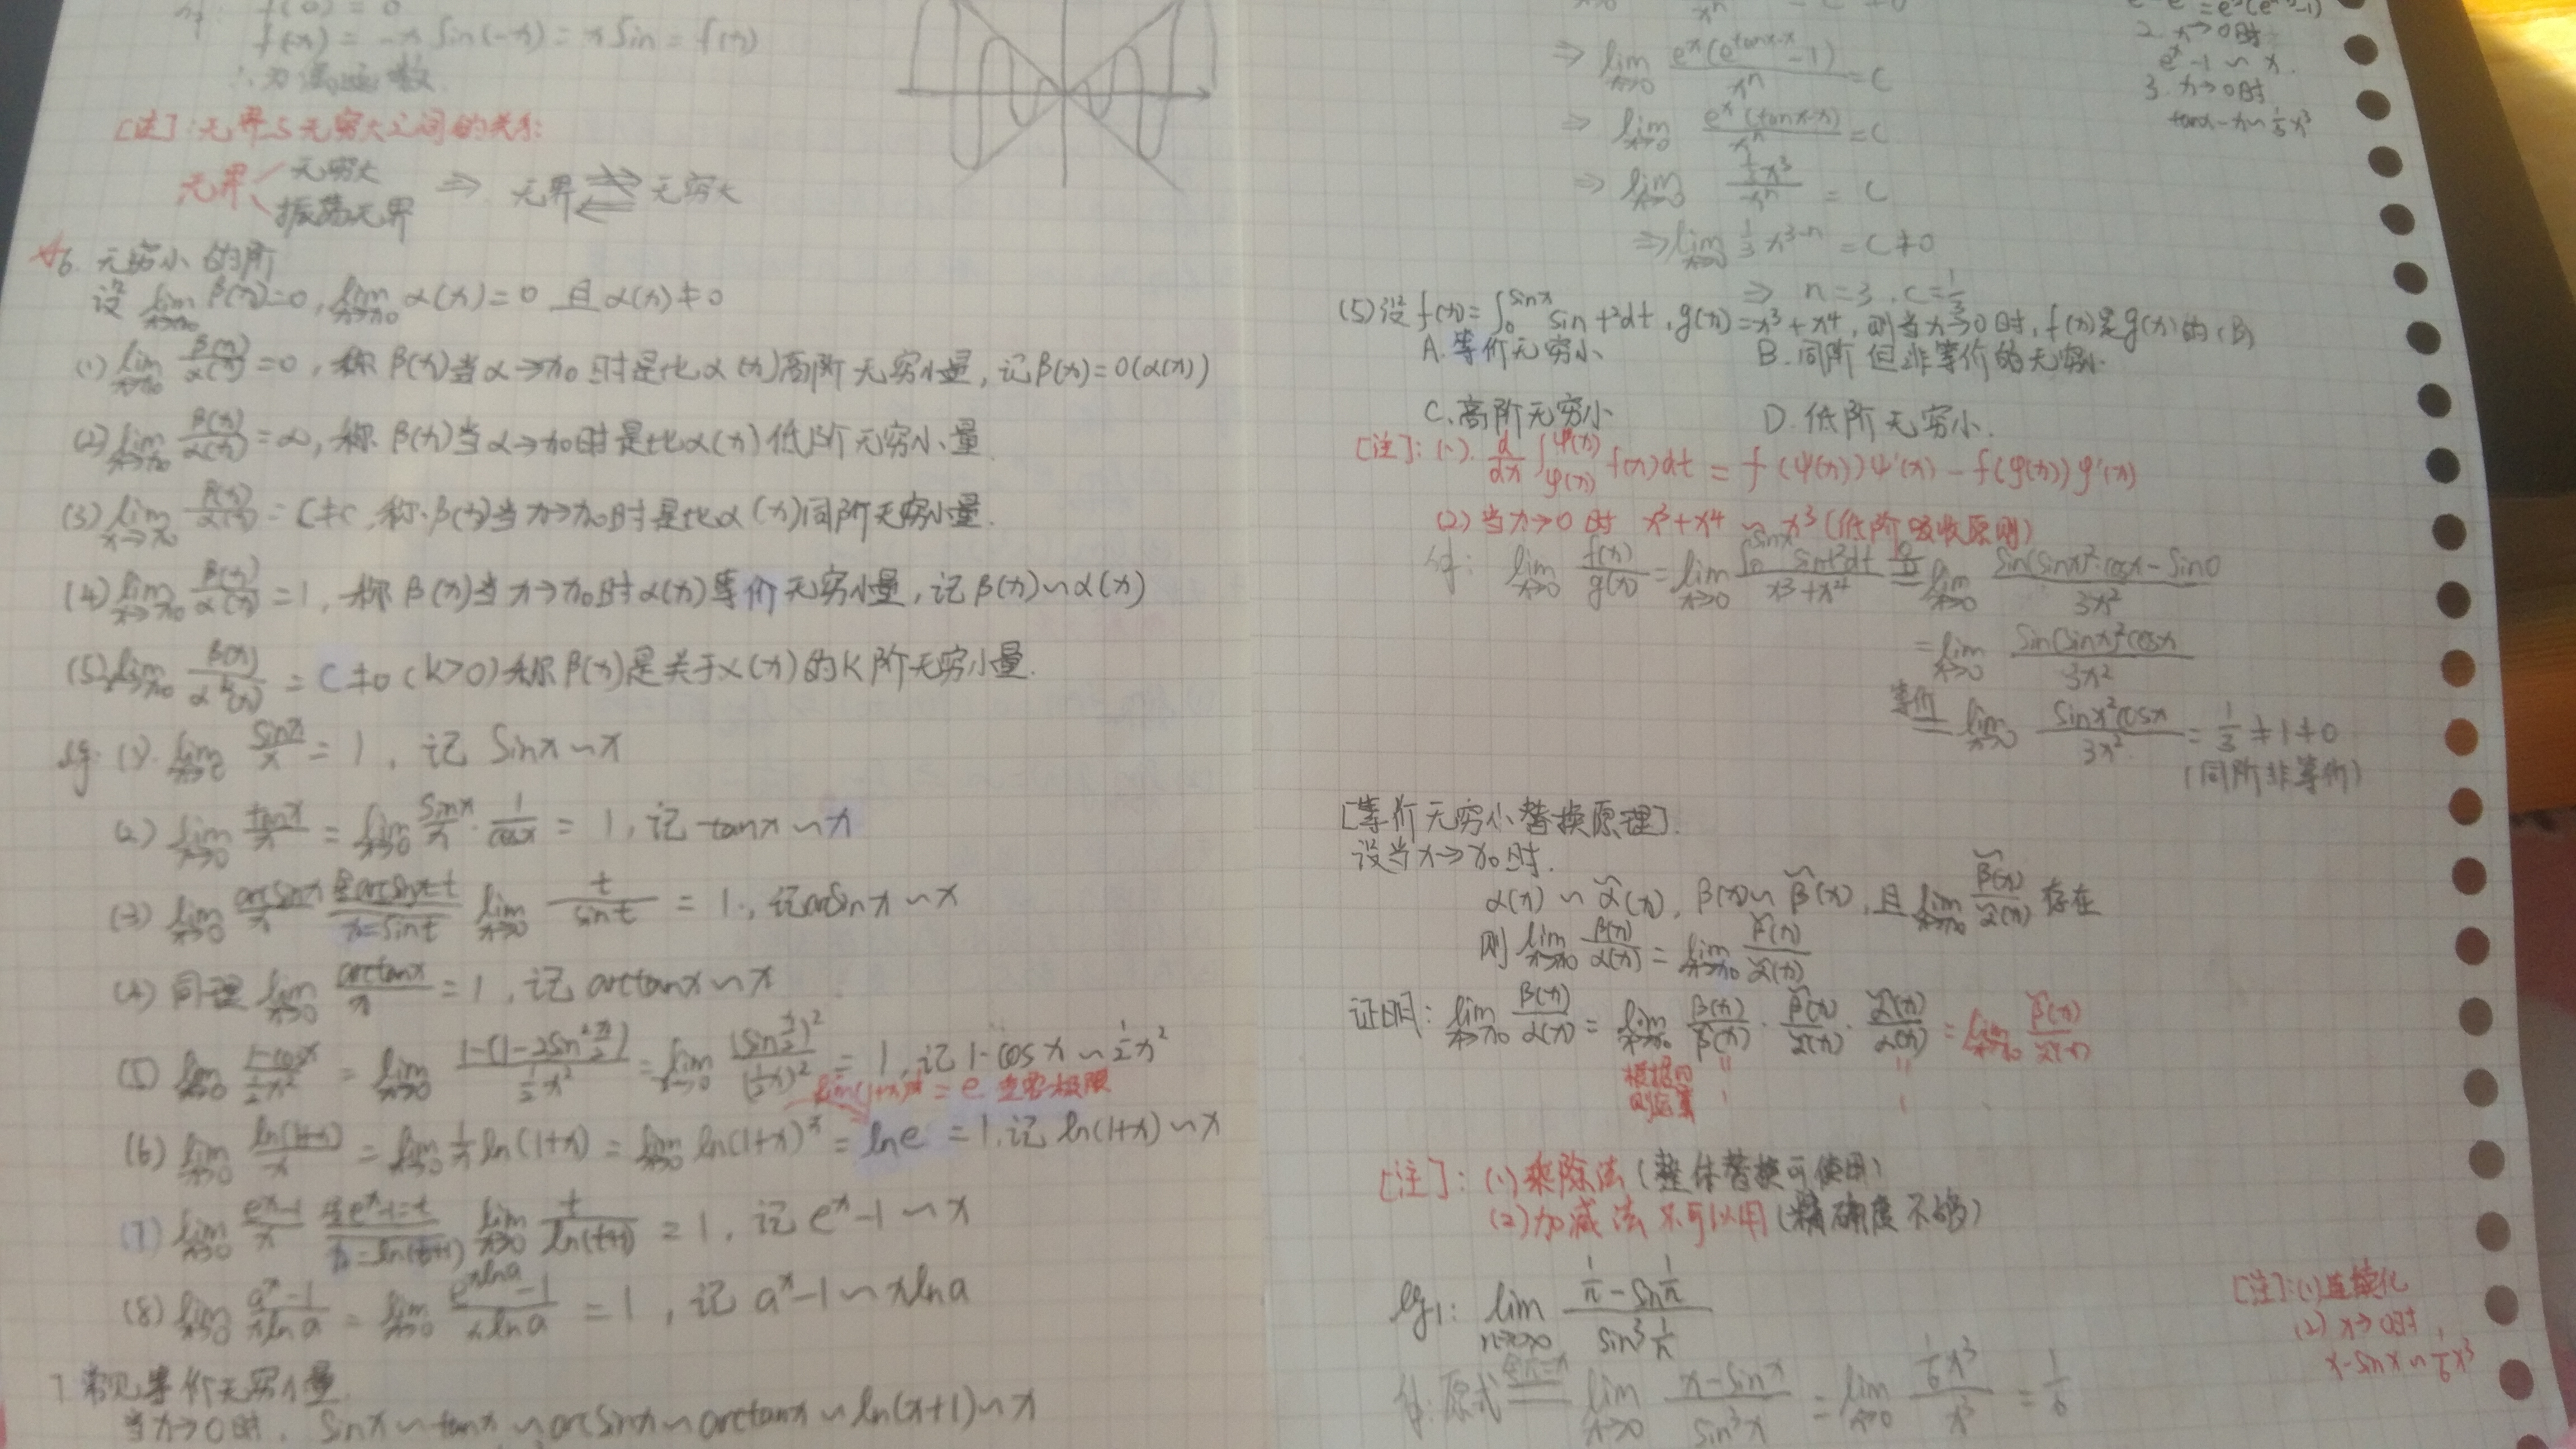 f(0) = 0
f(-x) = -x sin(-x) = x sin = f(x)
∴为偶函数.
[注]:无界与无穷大之间的关系:
无界 无穷大
振荡无界
⇒ 无界 ⇄ 无穷大
6. 无穷小的阶
设 lim x→x₀ β(x)=0, lim x→x₀ α(x)=0 且 α(x)≠0
(1) lim x→x₀ β(x)/α(x) =0, 称 β(x)当 α→x₀ 时是比 α(x)高阶无穷小量, 记β(x)=0(α(x))
(2) lim x→x₀ β(x)/α(x) =∞, 称 β(x)当 α→x₀时是比α(x)低阶无穷小量.
(3) lim x→x₀ β(x)/α(x) = C≠0, 称 β(x)当 x→x₀时是比α(x)同阶无穷小量.
(4) lim x→x₀ β(x)/α(x) = 1, 称 β(x)当 x→x₀时α(x)等价无穷小量, 记 β(x)∽α(x)
(5) lim x→x₀ β(x)/αᵏ(x) = C≠0 (k>0) 称 β(x)是关于α(x)的K阶无穷小量.
eg: (1). lim x→0 sinx/x = 1, 记 Sinx∽x
(2) lim x→0 tanx/x = lim x→0 sinx/x · 1/cosx = 1, 记 tanx∽x
(3) lim x→0 arcsinx/x 令arcsinx=t x=sint lim x→0 t/sint = 1, 记arcsinx∽x
(4) 同理 lim x→0 arctanx/x = 1, 记 arctanx∽x
(5) lim x→0 (1-cosx)/(½x²) = lim x→0 (1-(1-2sin²x/2))/(½x²) = lim x→0 (sin x/2)²/(½x)² = 1, 记 1-cosx∽½x²
= e 重要极限
(6) lim x→0 ln(1+x)/x = lim x→0 1/x ln(1+x) = lim x→0 ln(1+x)^(1/x) = lne = 1. 记 ln(1+x)∽x
(7) lim x→0 (eˣ-1)/x 令eˣ-1=t x=ln(t+1) lim x→0 t/ln(t+1) = 1, 记 eˣ-1∽x
(8) lim x→0 (aˣ-1)/(xlna) = lim x→0 (e^(xlna)-1)/(xlna) = 1, 记 aˣ-1∽xlna
7. 常见等价无穷小量.
当x→0时, Sinx∽tanx∽arcsinx∽arctanx∽ln(x+1)∽x
⇒ lim x→0 eˣ(e^(tanx-x)-1)/xⁿ = C
⇒ lim x→0 eˣ(tanx-x)/xⁿ = C
⇒ lim x→0 ⅓x³/xⁿ = C
⇒ lim x→0 ⅓x³⁻ⁿ = C≠0
⇒ n=3, C=⅓
2. x→0时
eˣ-1∽x.
3. x→0时
tanx-x∽⅓x³
(5)设 f(x)=∫₀^(sinx) sint²dt, g(x)=x³+x⁴, 则当x→0时, f(x)是g(x)的 (B)
A. 等价无穷小 B. 同阶但非等价的无穷小.
C. 高阶无穷小 D. 低阶无穷小.
[注]: (1). d/dx ∫ φ(x) ψ(x) f(x)dt = f(ψ(x))ψ'(x) - f(φ(x))φ'(x)
(2) 当x→0时 x³+x⁴∽x³ (低阶吸收原则)
lim x→0 f(x)/g(x) = lim x→0 ∫₀^(sinx) sint²dt/(x³+x⁴) 0/0 = lim x→0 (sin(sinx)²·cosx-sin0)/3x²
= lim x→0 sin(sinx)²cosx/3x²
等价 = lim x→0 sinx²cosx/3x² = 1/3 ≠1≠0
(同阶非等价)
[等价无穷小替换原理].
设当x→x₀时.
α(x)∽α̃(x), β(x)∽β̃(x), 且 lim x→x₀ β̃(x)/α̃(x) 存在
则 lim x→x₀ β(x)/α(x) = lim x→x₀ β̃(x)/α̃(x)
证明: lim x→x₀ β(x)/α(x) = lim x→x₀ β(x)/β̃(x) · β̃(x)/α̃(x) · α̃(x)/α(x) = lim x→x₀ β̃(x)/α̃(x)
[注]: (1)乘除法(整体替换可使用)
(2)加减法不可以用(精确度不够)
eg1: lim n→∞ (1/n - sin1/n)/(sin³1/n)
[注]:(1)连续化
(2) x→0时,
x-sinx∽⅙x³
解:原式 令1/n=x lim x→0 (x-sinx)/sin³x = lim x→0 ⅙x³/x³ = 1/6